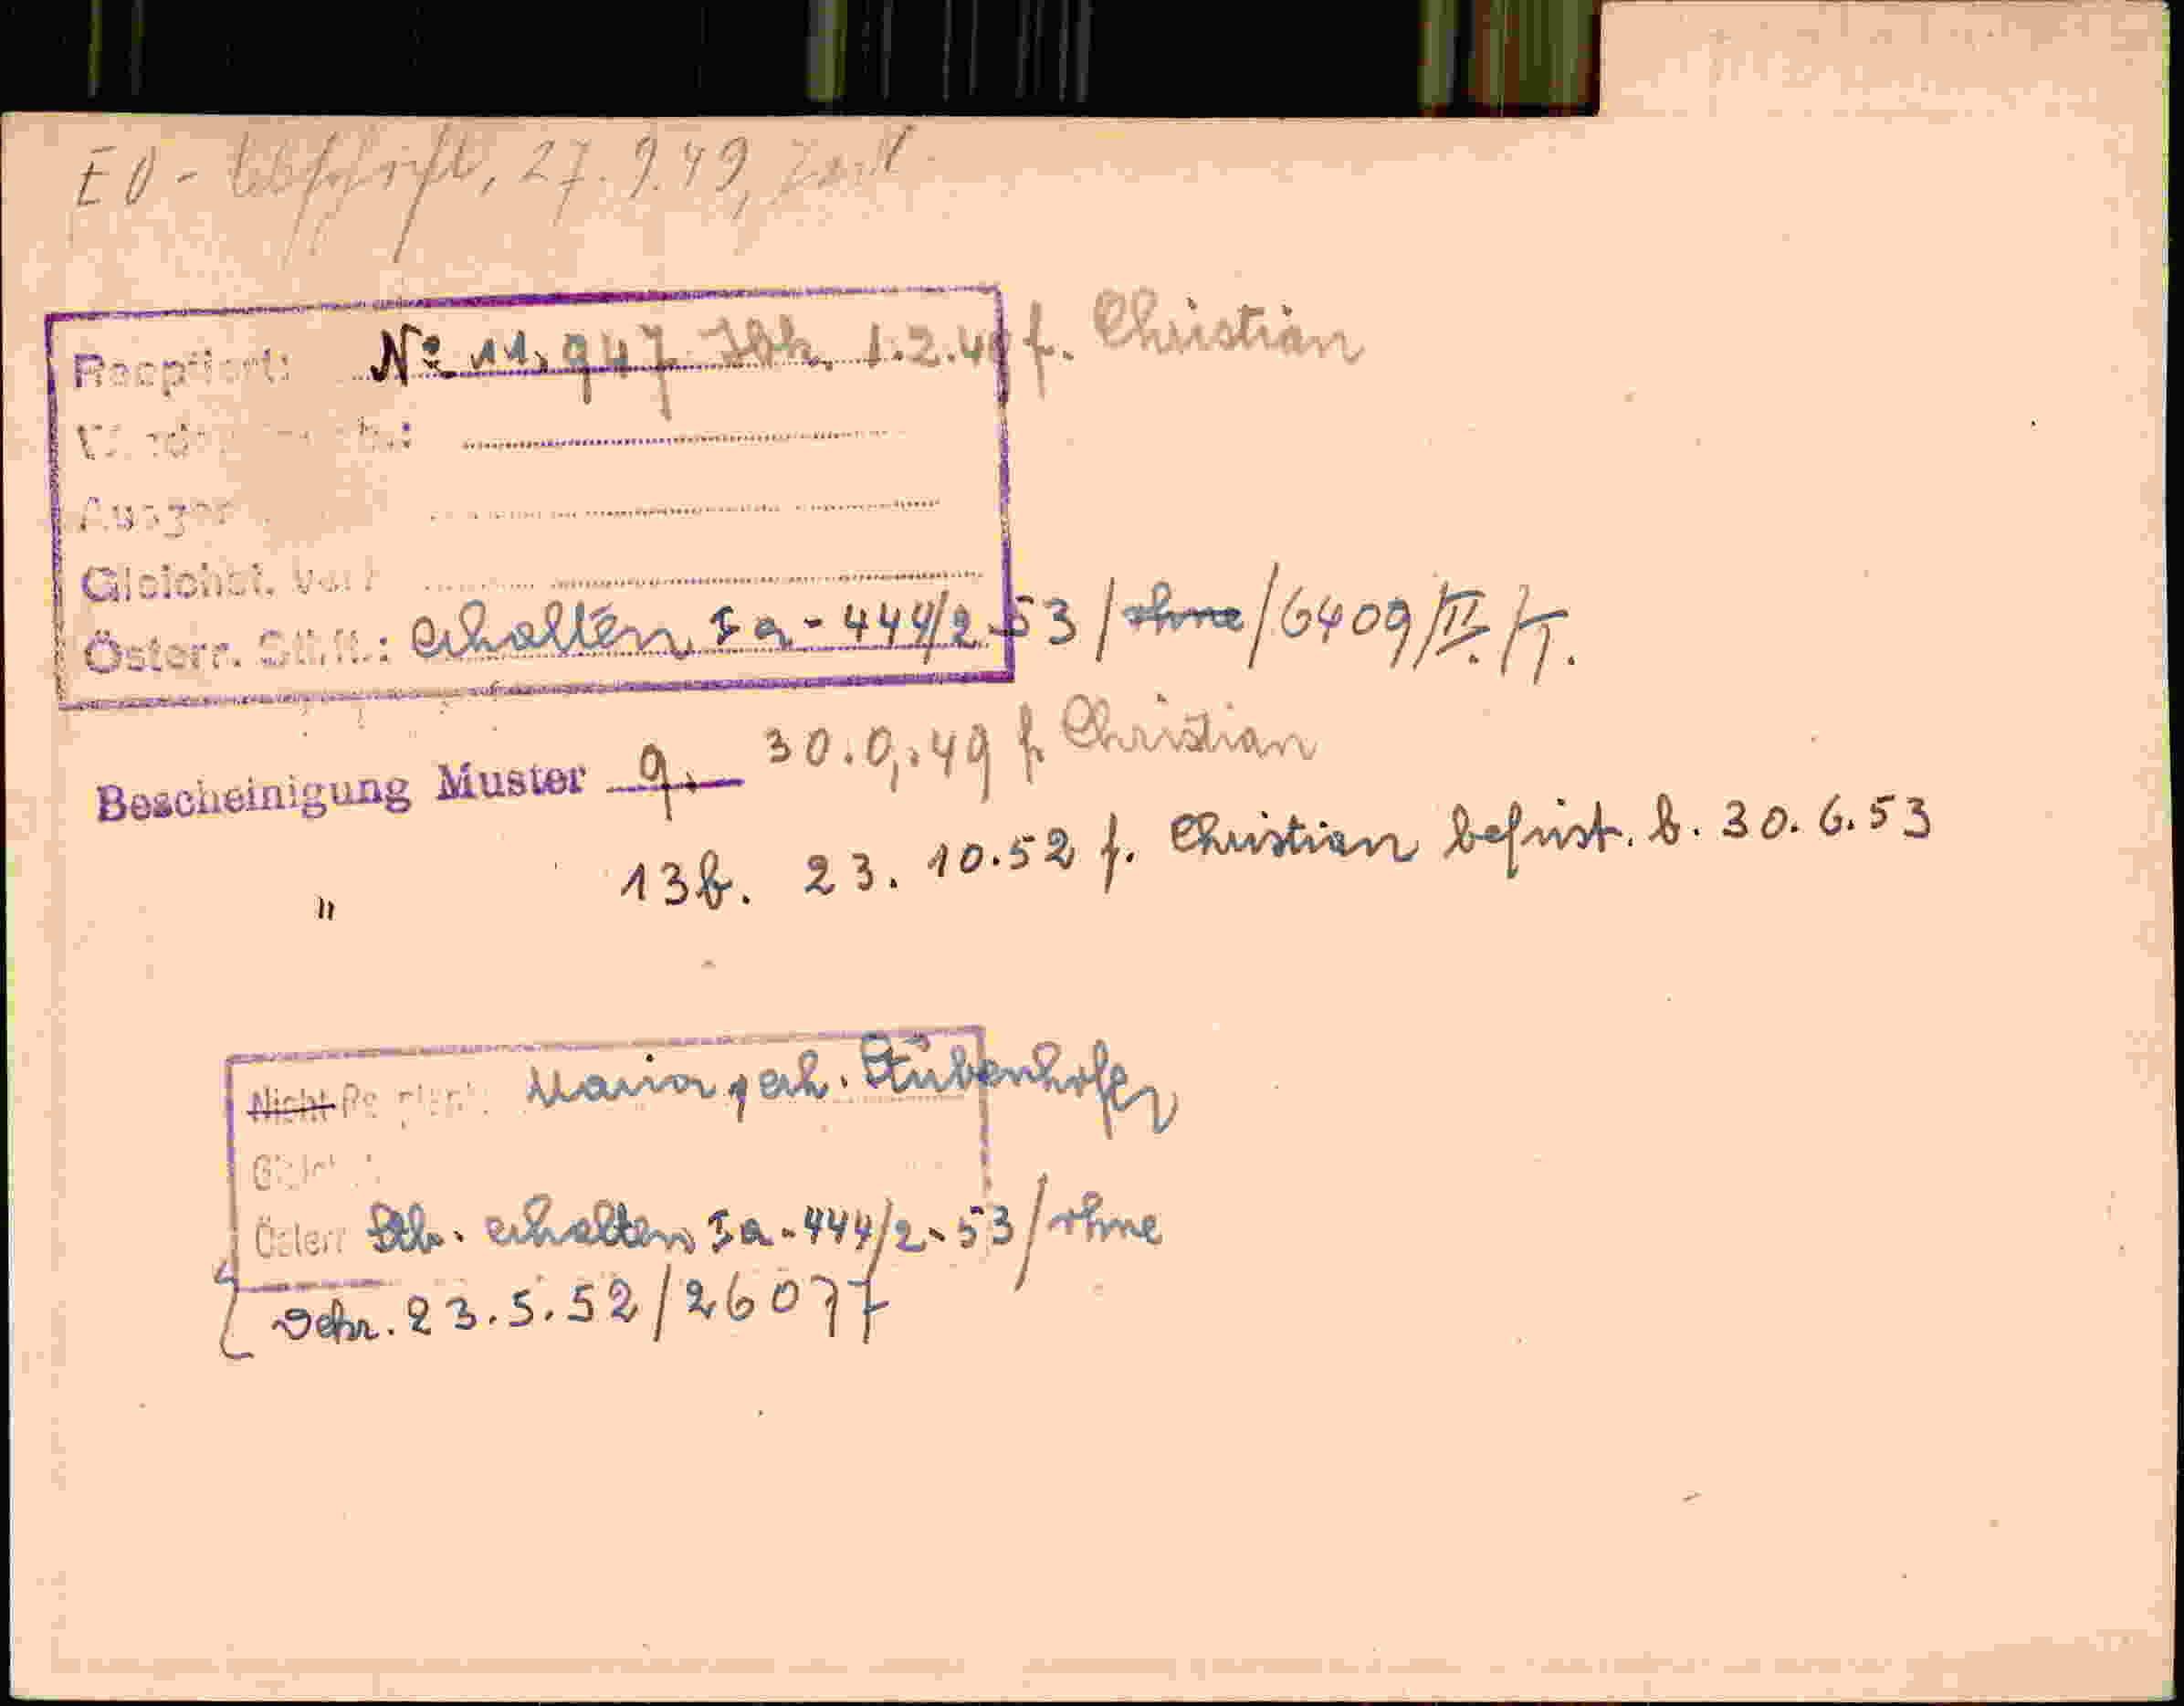 EO - Abschrift, 27.9.49,
Reoptiert: No 11.947 1.2.49 f. Christian
Gleichst.
Österr. Stb.: erhalten Ia-444/2-53/ohne/6409/II./I.
Bescheinigung Muster 9. 30.9.49 f. Christian
" 13b. 23.10.52 f. Christian befrist. b. 30.6.53
Nicht Reoptiert: Maria geb. Stübenhofer
Österr Stb. erhalten Ia-444/2-53/ohne
Schr. 23.5.52/26077